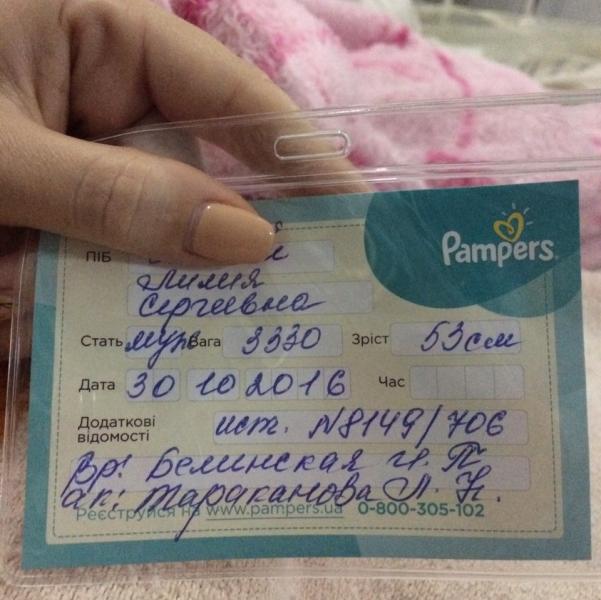 Pampers
ПІБ
Лилия
Сергеевна
Стать муж Вага 3330 Зріст 53 см
Дата 30 10 2016 Час
Додаткові
відомості
ист. N8149/706
Вр: Белинская И. П.
ак: Тараканова Л. Н.
Реєструйся на www.pampers.ua 0-800-305-102